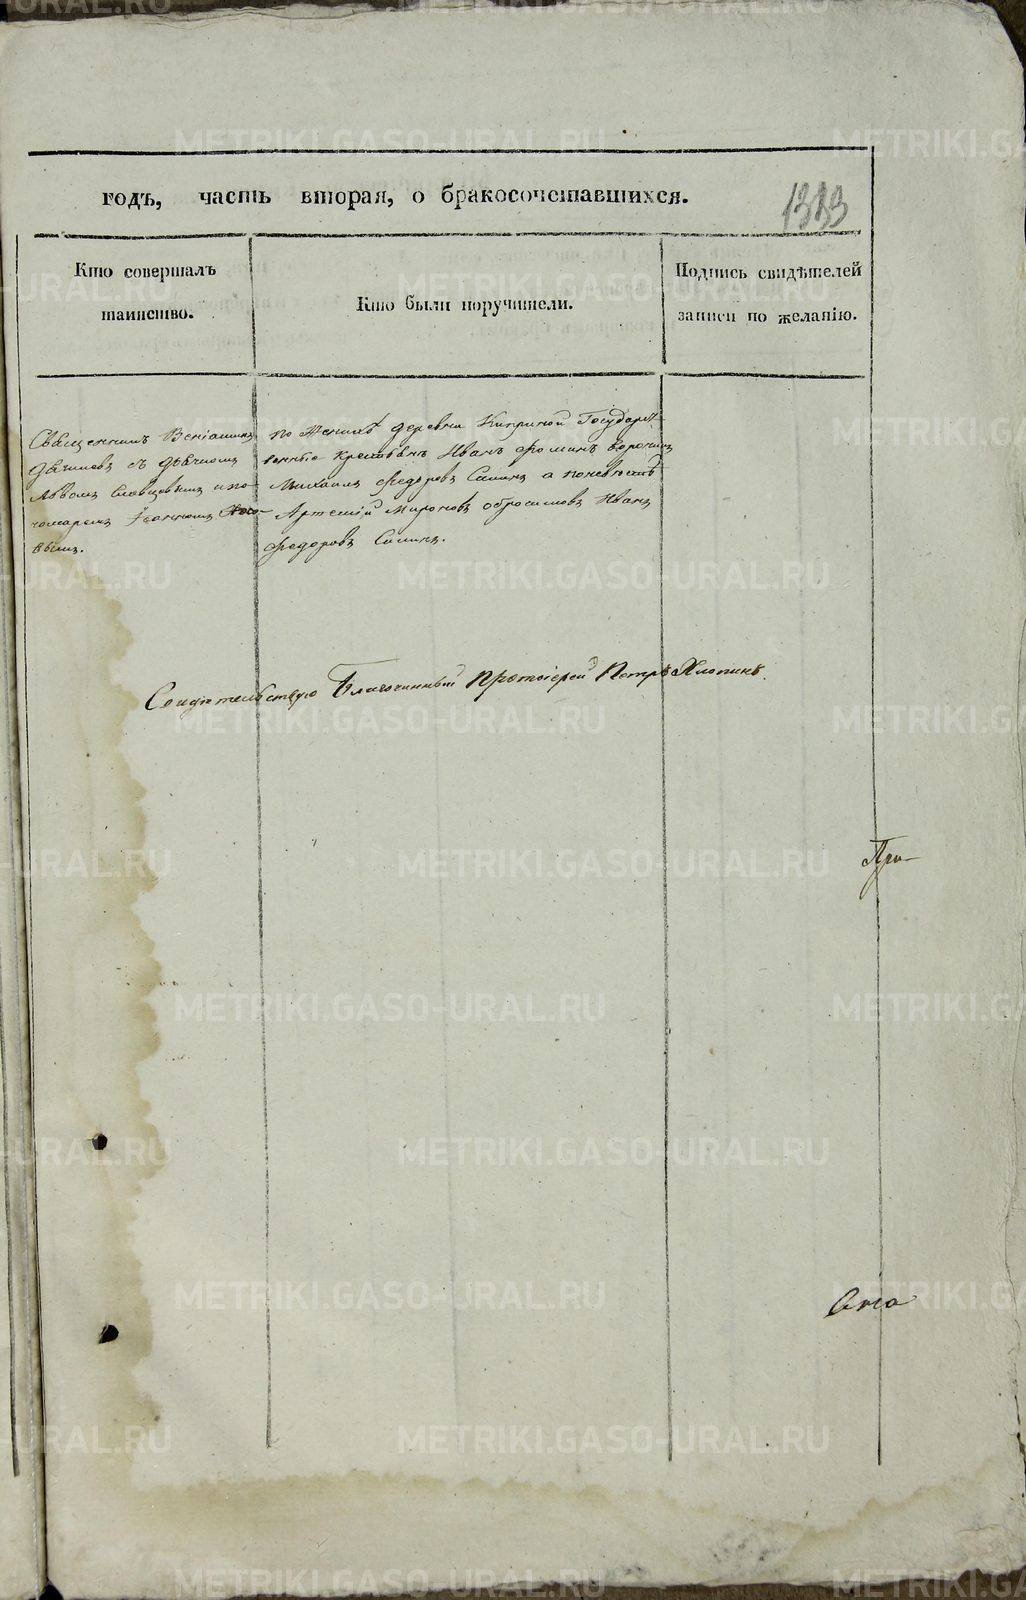 годъ, часть вторая, о бракосочетавшихся.
1383
Кто совершалъ
таинство.
Кто были поручители.
Подпись свидѣтелей
записи по желанію.
Священникъ Веніаминъ
с дьячкомъ
Львомъ Словцовымъ и по-
номаремъ Іоанномъ
вымъ.
по женихѣ деревни Киприной Государст-
венные крестьяне Иванъ Фоминъ Воронинъ
Михаилъ Федоровъ Силинъ а по невѣстѣ
Артемій Мироновъ Обросимовъ Иванъ
Федоровъ Силинъ.
Свидетельствую Благочинный Протоіерей Петръ Хлопинъ.
METRIKI.GASO-URAL.RU